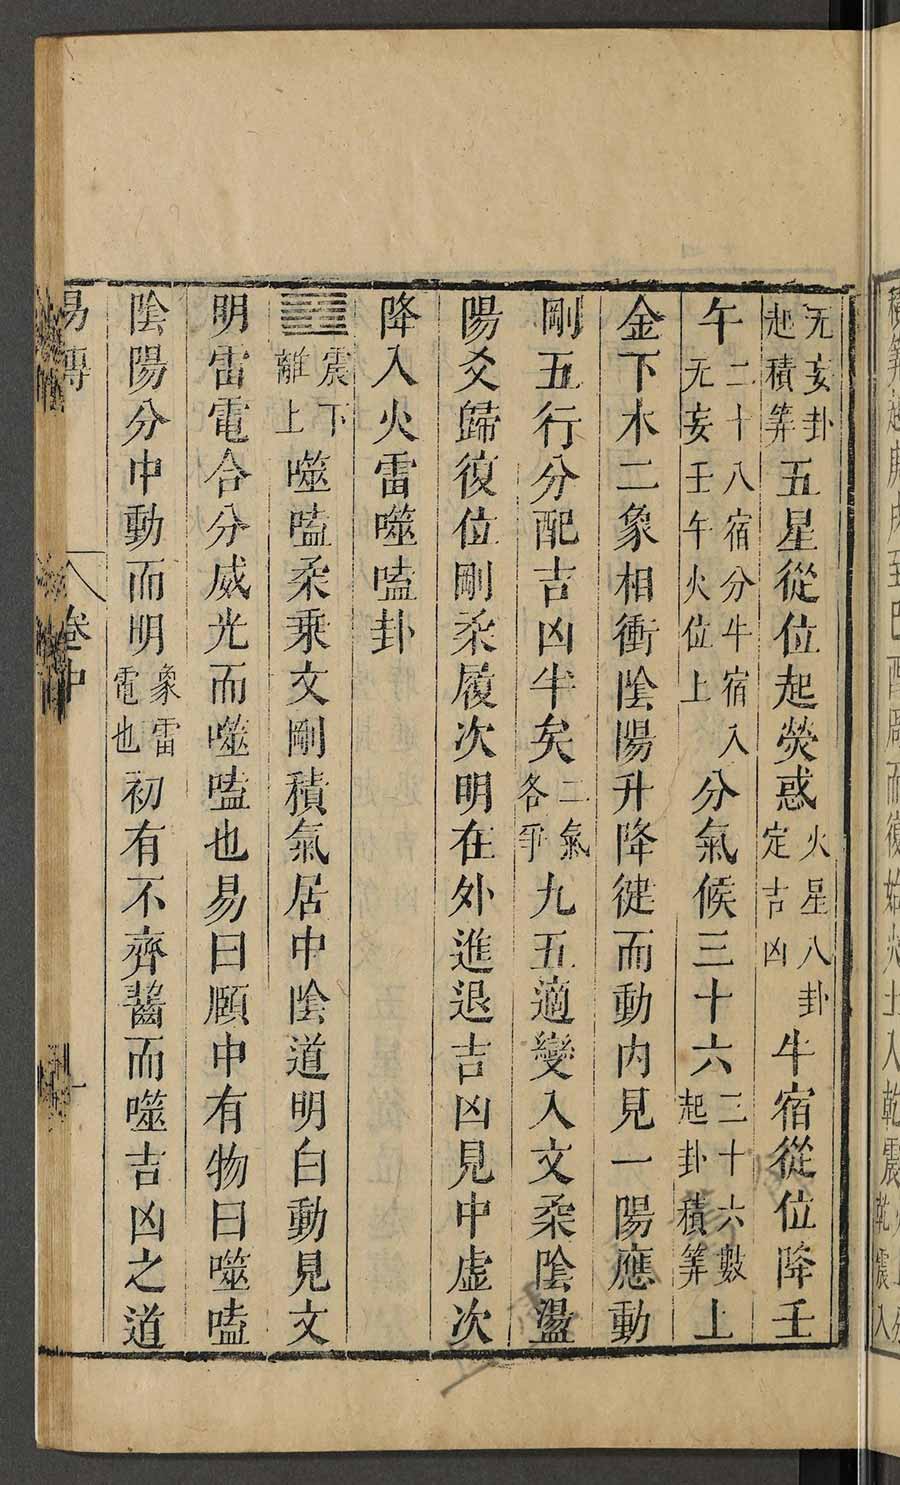 无妄卦起積筭五星從位起熒惑火星八卦定吉凶牛宿從位降壬
午二十八宿分牛宿入无妄壬午火位上分氣候三十六三十六數起卦積筭上
金下木二象相衝隂陽升降健而動内見一陽應動
剛五行分配吉凶半矣二氣各爭九五適變入文柔隂盪
陽爻歸復位剛柔履次明在外進退吉凶見中虛次
降入火雷噬嗑卦
震下離上噬嗑柔乘文剛積氣居中隂道明白動見文
明雷電合分威光而噬嗑也易曰頤中有物曰噬嗑
隂陽分中動而明象雷電也初有不齊齧而噬吉凶之道
易傳 卷中